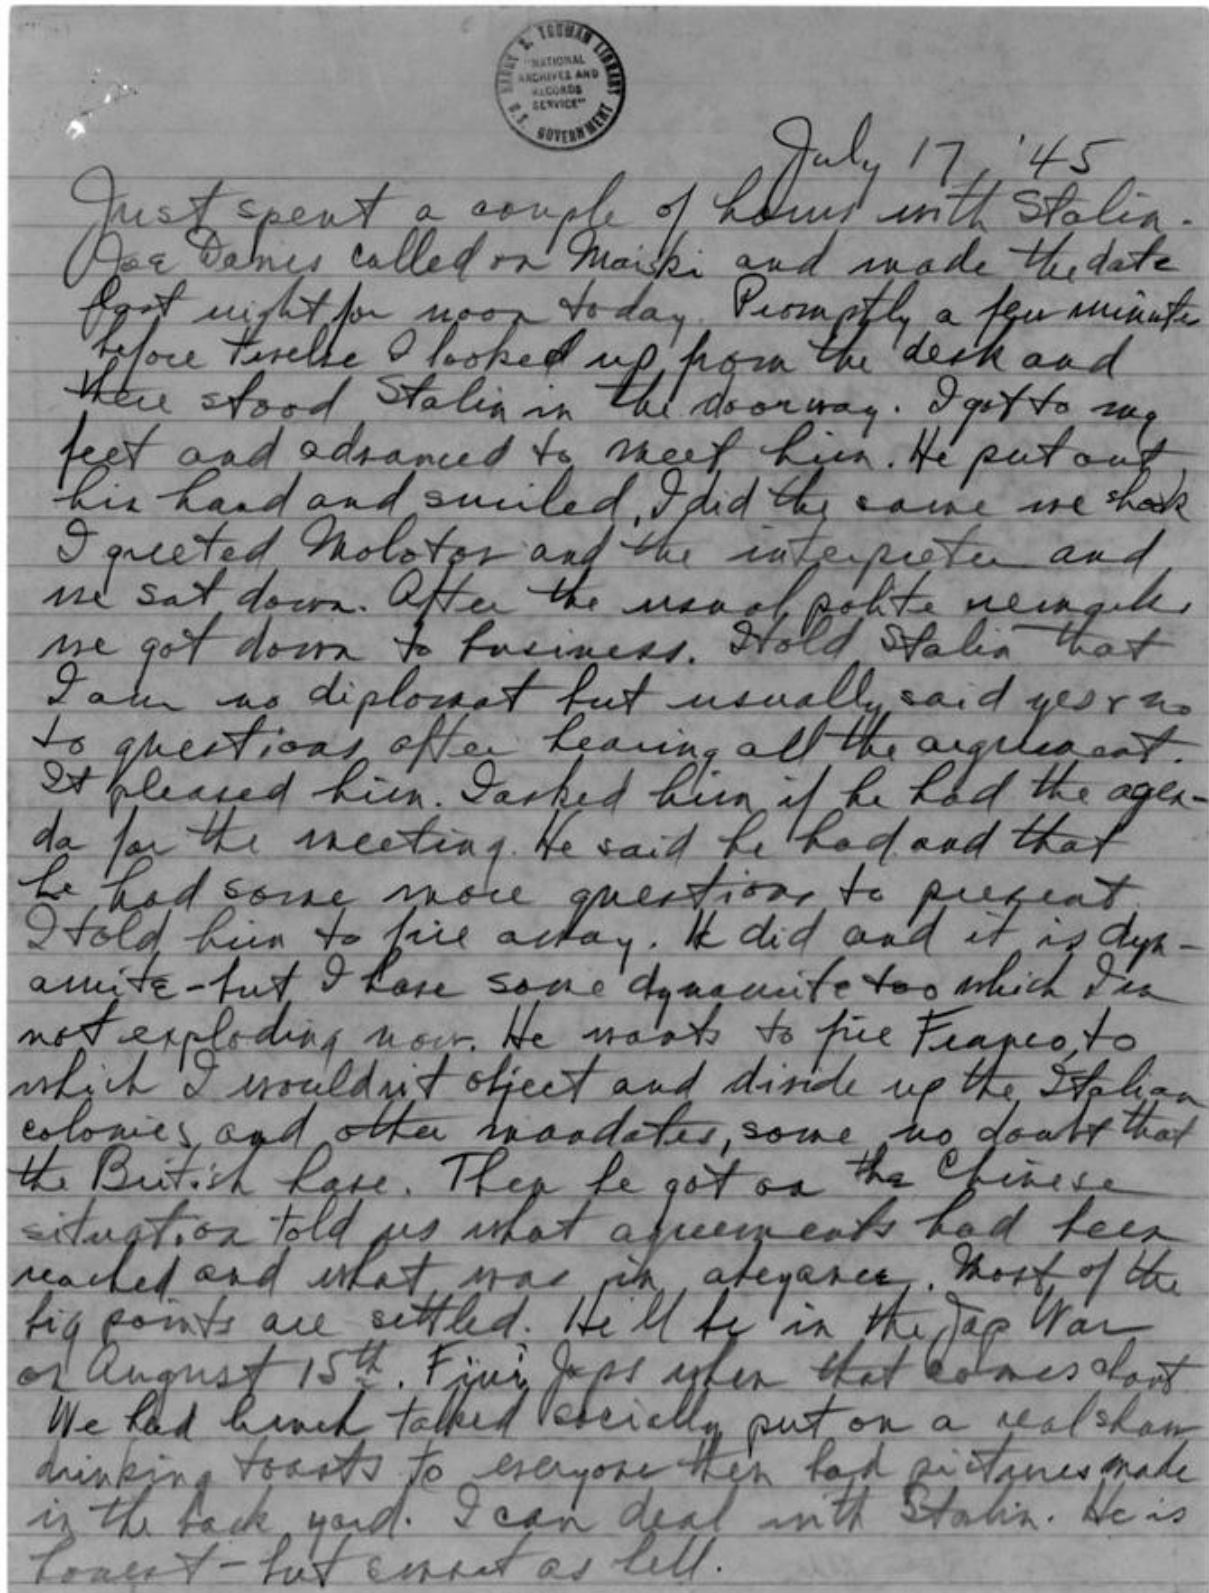 HARRY S. TRUMAN LIBRARY
"NATIONAL
ARCHIVES AND
RECORDS
SERVICE"
U.S. GOVERNMENT
July 17, '45
Just spent a couple of hours with Stalin.
Joe Davies called on Maiski and made the date
last night for noon today. Promptly a few minutes
before twelve I looked up from the desk and
there stood Stalin in the doorway. I got to my
feet and advanced to meet him. He put out
his hand and smiled. I did the same we shook
I greeted Molotov and the interpreter and
we sat down. After the usual polite remarks
we got down to business. I told Stalin that
I am no diplomat but usually said yes & no
to questions after hearing all the argument.
It pleased him. I asked him if he had the agen-
da for the meeting. He said he had and that
he had some more questions to present.
I told him to fire away. He did and it is dyn-
amite - but I have some dynamite too which I'm
not exploding now. He wants to fire Franco, to
which I wouldn't object and divide up the Italian
colonies and other mandates, some no doubt that
the British have. Then he got on the Chinese
situation told us what agreements had been
reached and what was in abeyance. Most of the
big points are settled. He'll be in the Jap War
on August 15th. Fini Japs when that comes about.
We had lunch talked socially put on a real show
drinking toasts to everyone then had pictures made
in the back yard. I can deal with Stalin. He is
honest - but smart as hell.